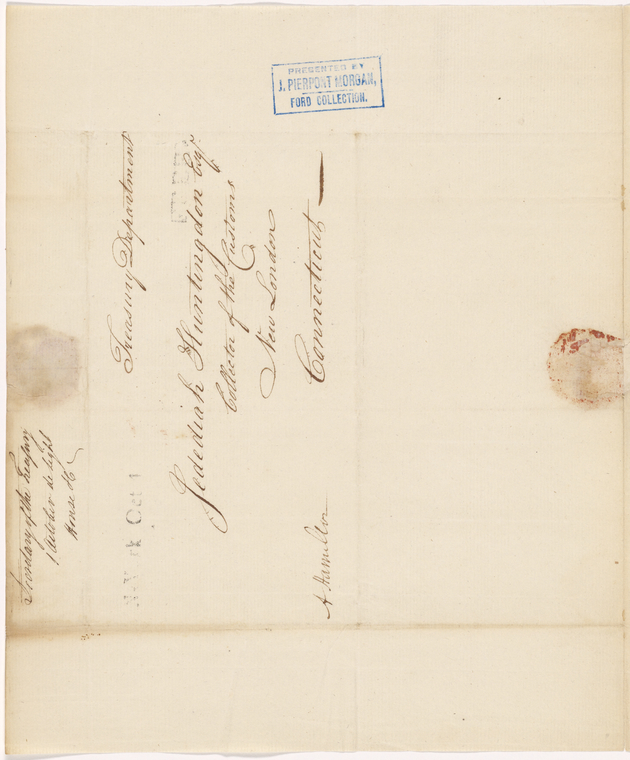 PRESENTED BY
J. PIERPONT MORGAN,
FORD COLLECTION.
Treasury Department
FREE
Jedediah Huntingdon Esqr.
Collector of the Customs
New London
Connecticut
N-York Oct 1
A Hamilton
Secretary of the Treasury
1 October light
House